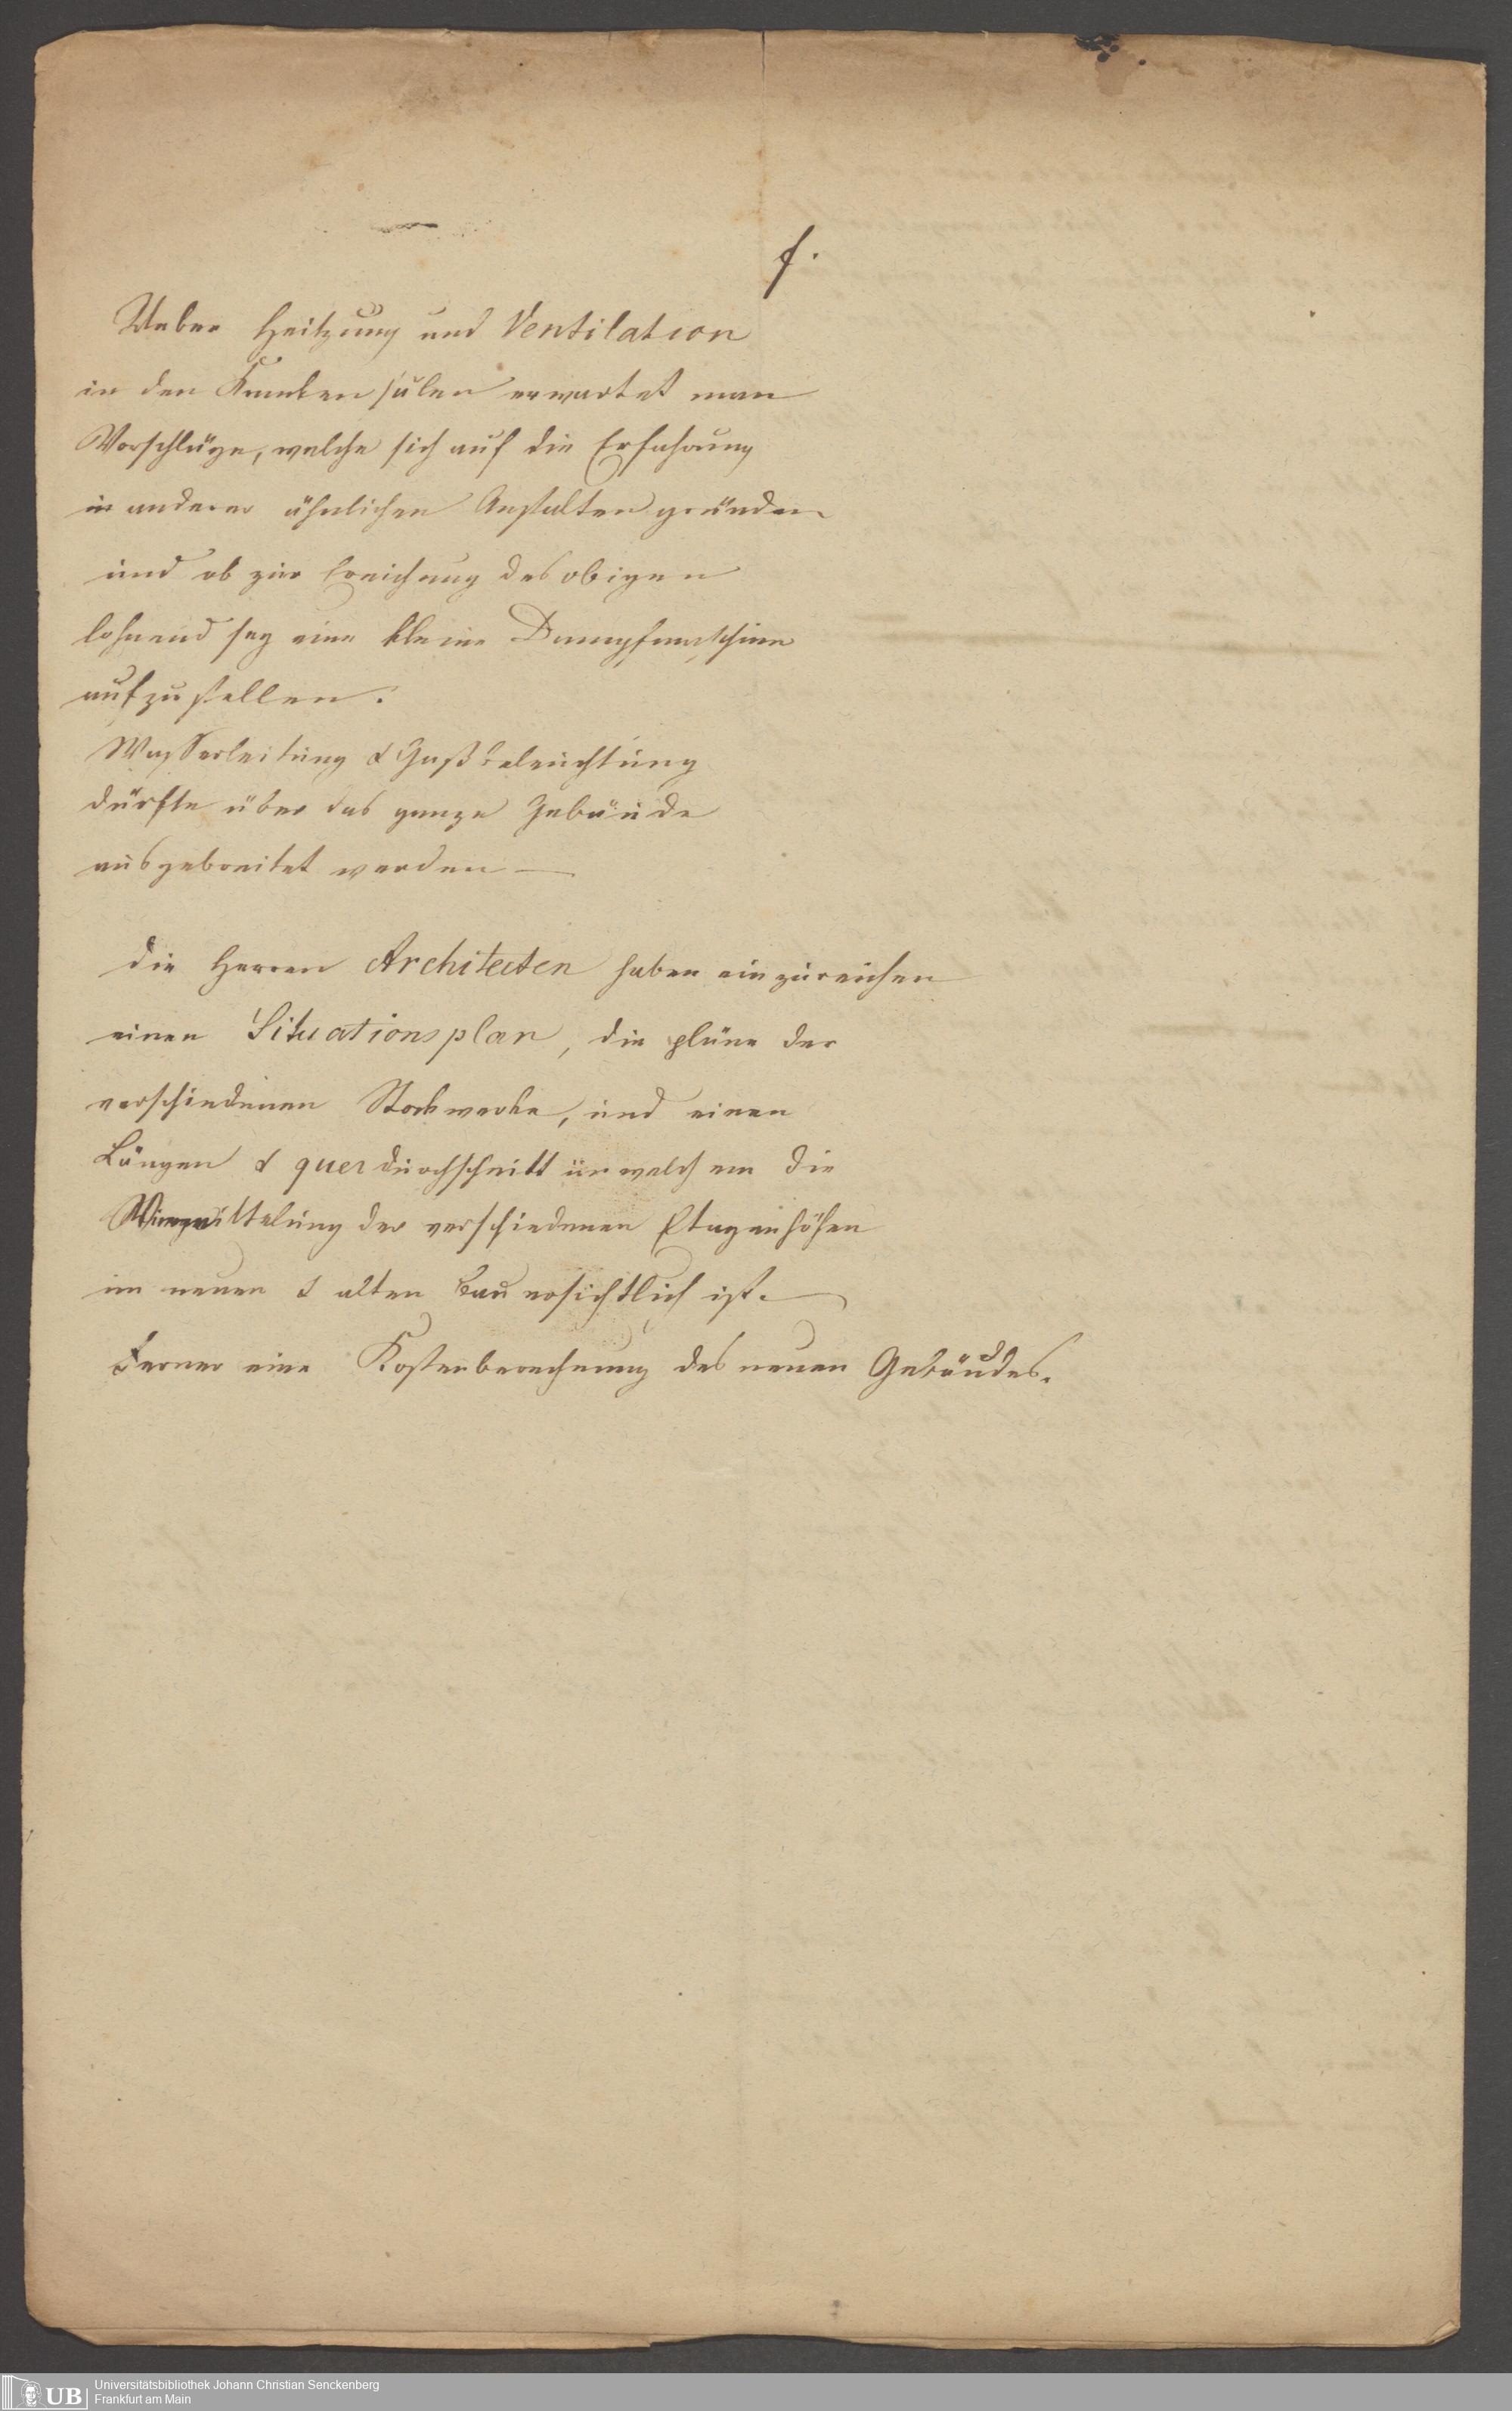 f.
Ueber Heitzung und Ventilation
in den Krankensälen erwartet man
Vorschläge, welche sich auf die Erfahrung
in anderen ähnlichen Anstalten gründen
und ob zur Ereichung des obigen
lohnend sey eine kleine Dampfmaschine
aufzustellen.
Wasserleitung & Gaßbeleuchtung
dürfte über das ganze Gebäude
ausgebreitet werden —
die Herren Architecten haben einzureichen
einen Situationsplan, die pläne der
verschiedenen Stockwerke, und einen
Längen & quer durchschnitt in welchem die
der verschiedenen Etagenhöhen
im neuen & alten Bau ersichtlich ist. —
Ferner eine Kostenberechnung des neuen Gebäudes.
UB
Universitätsbibliothek Johann Christian Senckenberg
Frankfurt am Main